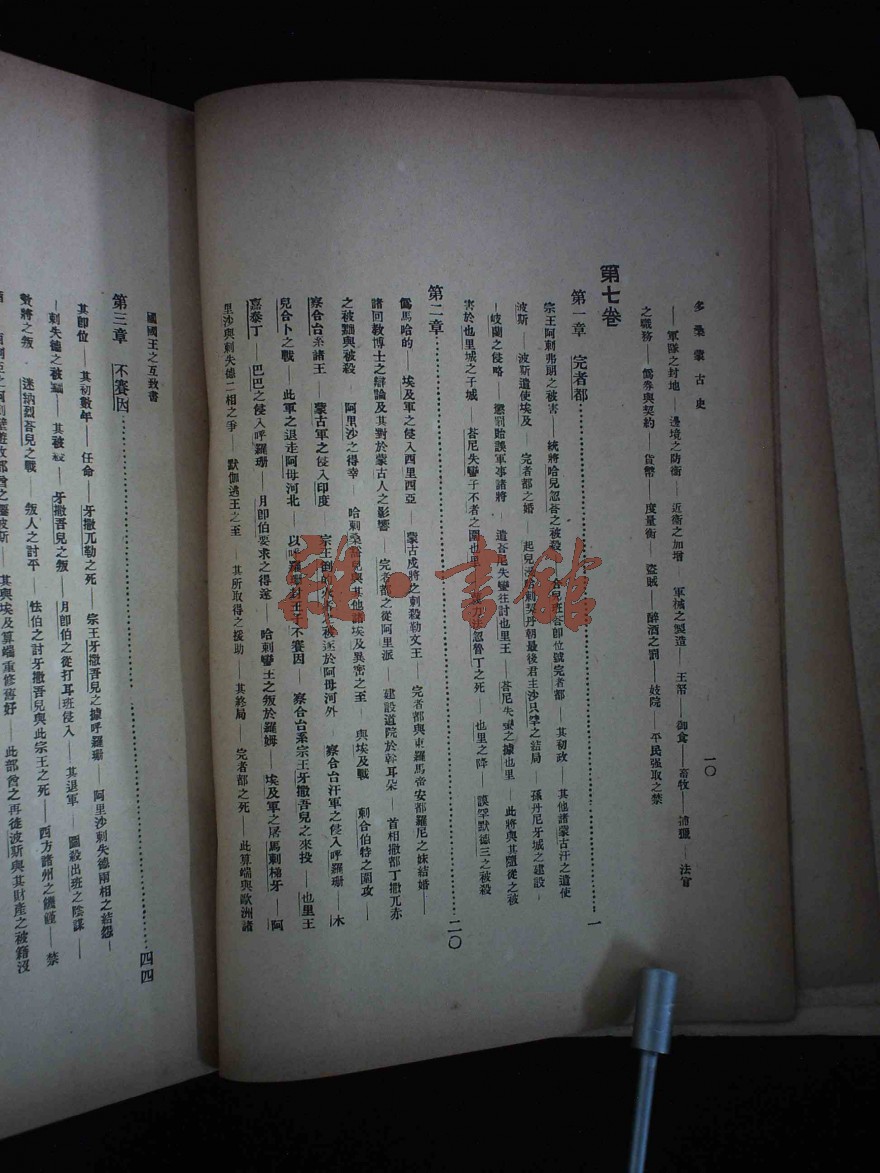 多桑蒙古史
一〇
——軍隊之封地——邊境之防衛——近衛之加增——軍械之製造——王帑——御食——畜牧——捕獵——法官
之職務——僞券與契約——貨幣——度量衡——盜賊——酗酒之罰——妓院——平民强取之禁
第七卷
第一章 完者都……一
宗王阿剌弗朗之被害——統將哈兒忽荅之被殺——合兒班荅卽位號完者都——其初政——其他諸蒙古汗之遣使
波斯——波斯遣使埃及——完者都之婚——起兒漫哈剌契丹朝最後君主沙只罕之結局——孫丹尼牙城之建設
——岐蘭之侵略——懲罰貽誤軍事諸將——遣荅尼失蠻往討也里王——荅尼失蠻之據也里——此將與其隨從之被
害於也里城之子城——荅尼失蠻子不者之圍也里——忽魯丁之死——也里之降——謨罕默德三之被殺
第二章……二〇
僞馬哈的——埃及軍之侵入西里西亞——蒙古戍將之刺殺勒文王——完者都與東羅馬帝安都羅尼之妹結婚——
諸回教博士之辯論及其對於蒙古人之影響——完者都之從阿里派——建設道院於斡耳朵——首相撒都丁撒兀赤
之被黜與被殺——阿里沙之得幸——哈剌桑荅兒與其他諸埃及異密之至——與埃及戰——剌合伯特之圍攻——
察合台系諸王——蒙古軍之侵入印度——宗王倒的被逐於阿母河外——察合台汗軍之侵入呼羅珊——木
兒合卜之戰——此軍之退走阿母河北——以呼羅珊封王子不賽因——察合台系宗王牙撒吾兒之來投——也里王
嘉泰丁——巴巴之侵入呼羅珊——月卽伯要求之得遂——哈剌蠻土之叛於羅姆——埃及軍之屠馬剌梯牙——阿
里沙與剌失德二相之爭——默伽遇王之至——其所取得之援助——其終局——完者都之死——此算端與歐洲諸
國國王之互致書
第三章 不賽因……四四
其卽位——其初數年——任命——牙撒兀勒之死——宗王牙撒吾兒之據呼羅珊——阿里沙剌失德兩相之結怨——
剌失德之被黜——其被殺——牙撒吾兒之叛——月卽伯之從打耳班侵入——其退軍——圖殺出班之陰謀——
數將之叛——迷納烈荅兒之戰——叛人之討平——怯伯之討牙撒吾兒與此宗王之死——西方諸州之饑饉——禁
其與埃及算端重修舊好——此部酋之再徙波斯與其財產之被籍沒
雜·書館